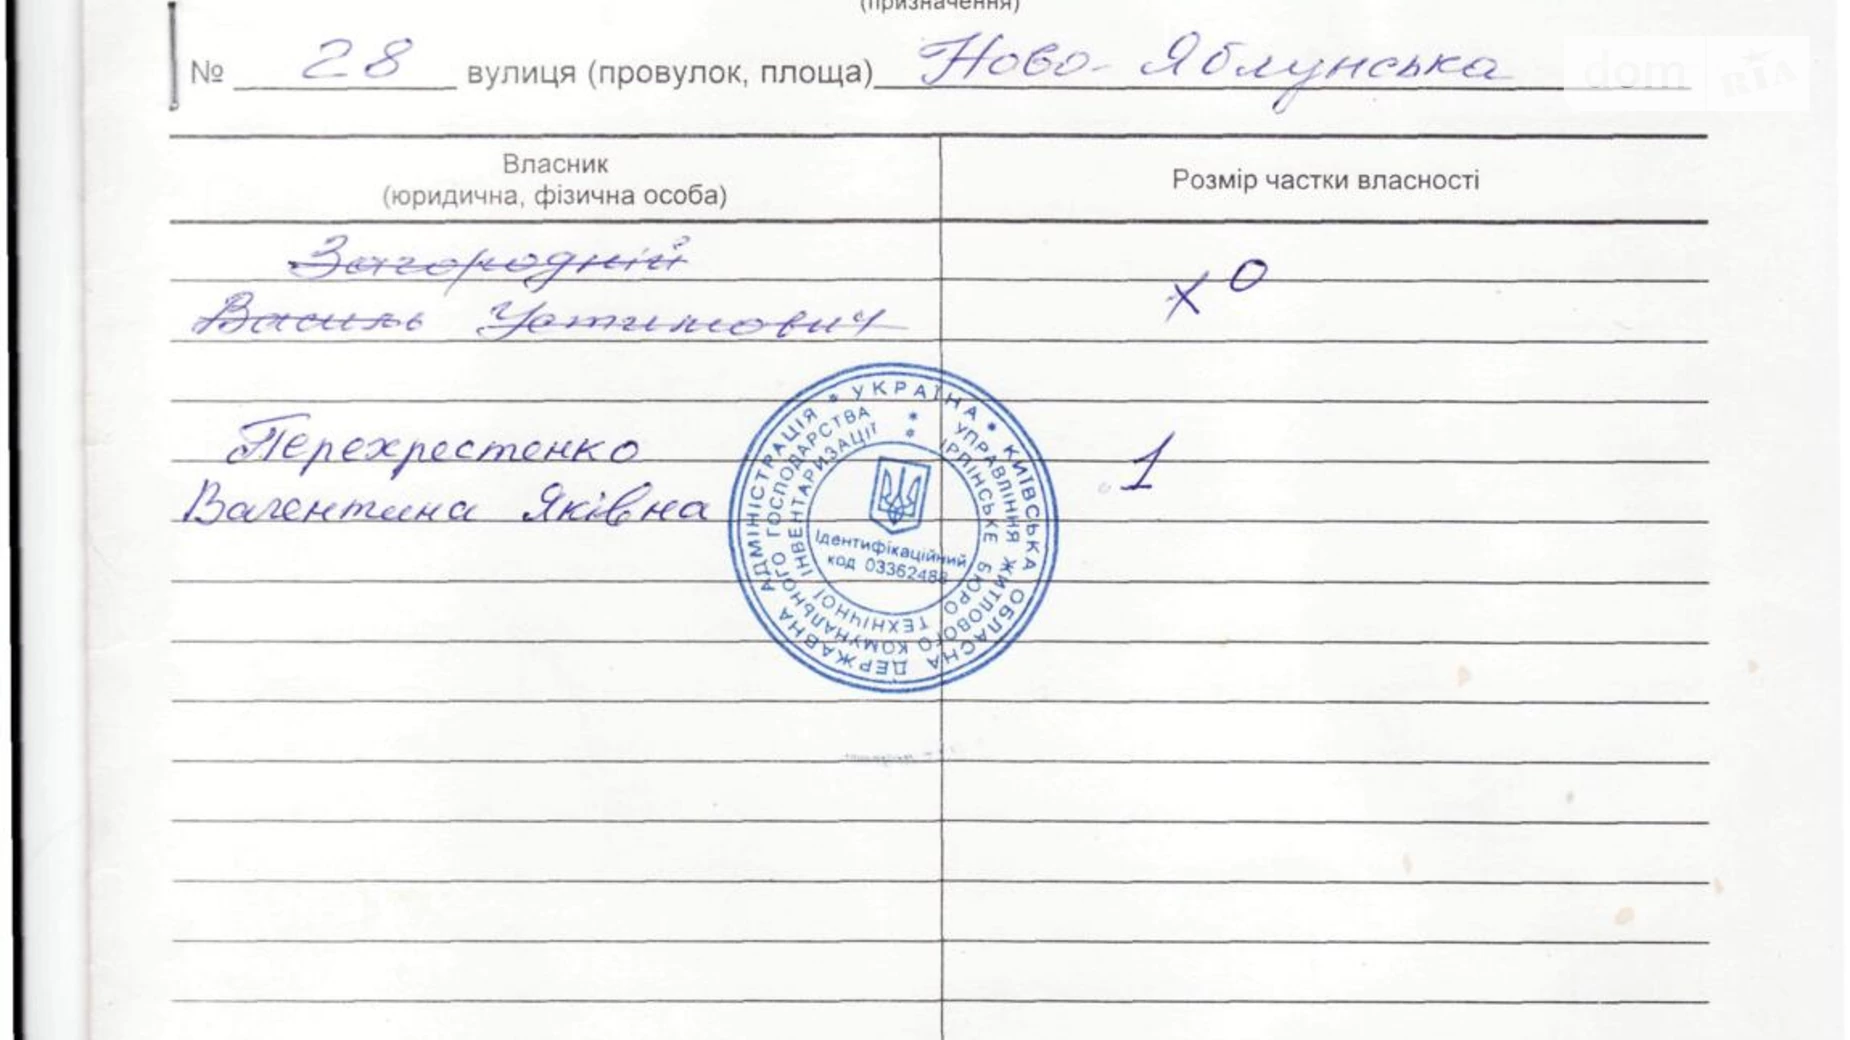 (призначення)
№ 28 вулиця (провулок, площа) Ново-Яблунська
dom RIA
Власник
(юридична, фізична особа)
Розмір частки власності
Загородній
Василь Устимович
х 0
Перехрестенко
Валентина Яківна
1
УКРАЇНА * КИЇВСЬКА ОБЛАСНА ДЕРЖАВНА АДМІНІСТРАЦІЯ *
* УПРАВЛІННЯ ЖИТЛОВОГО КОМУНАЛЬНОГО ГОСПОДАРСТВА
* ІРПІНСЬКЕ БЮРО ТЕХНІЧНОЇ ІНВЕНТАРИЗАЦІЇ
Ідентифікаційний
код 03362488